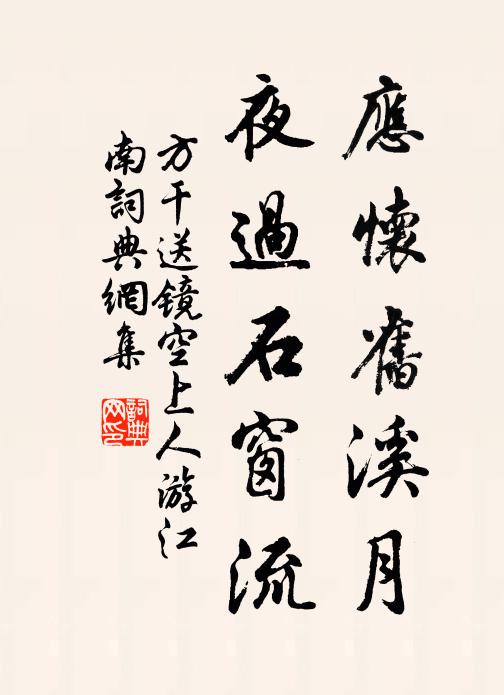 應懷舊溪月
夜過石窗流
方干送镜空上人游江
南詞典網集
詞典
网印